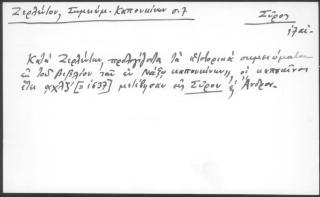 Ζερλέντου, Σημειώμ. Καπουκίνων σ. 7
Σῦρος
Κατὰ Ζερλέντην τὰ ἱστορικὰ σημειώματα
ἐκ τοῦ βιβλίου τῶν ἐν Νάξῳ καπουκίνων, οἱ καπουκῖνοι
ἔτει αχλζ' [= 1637] μετέβησαν εἰς Σῦρον ἐξ Ἄνδρου.